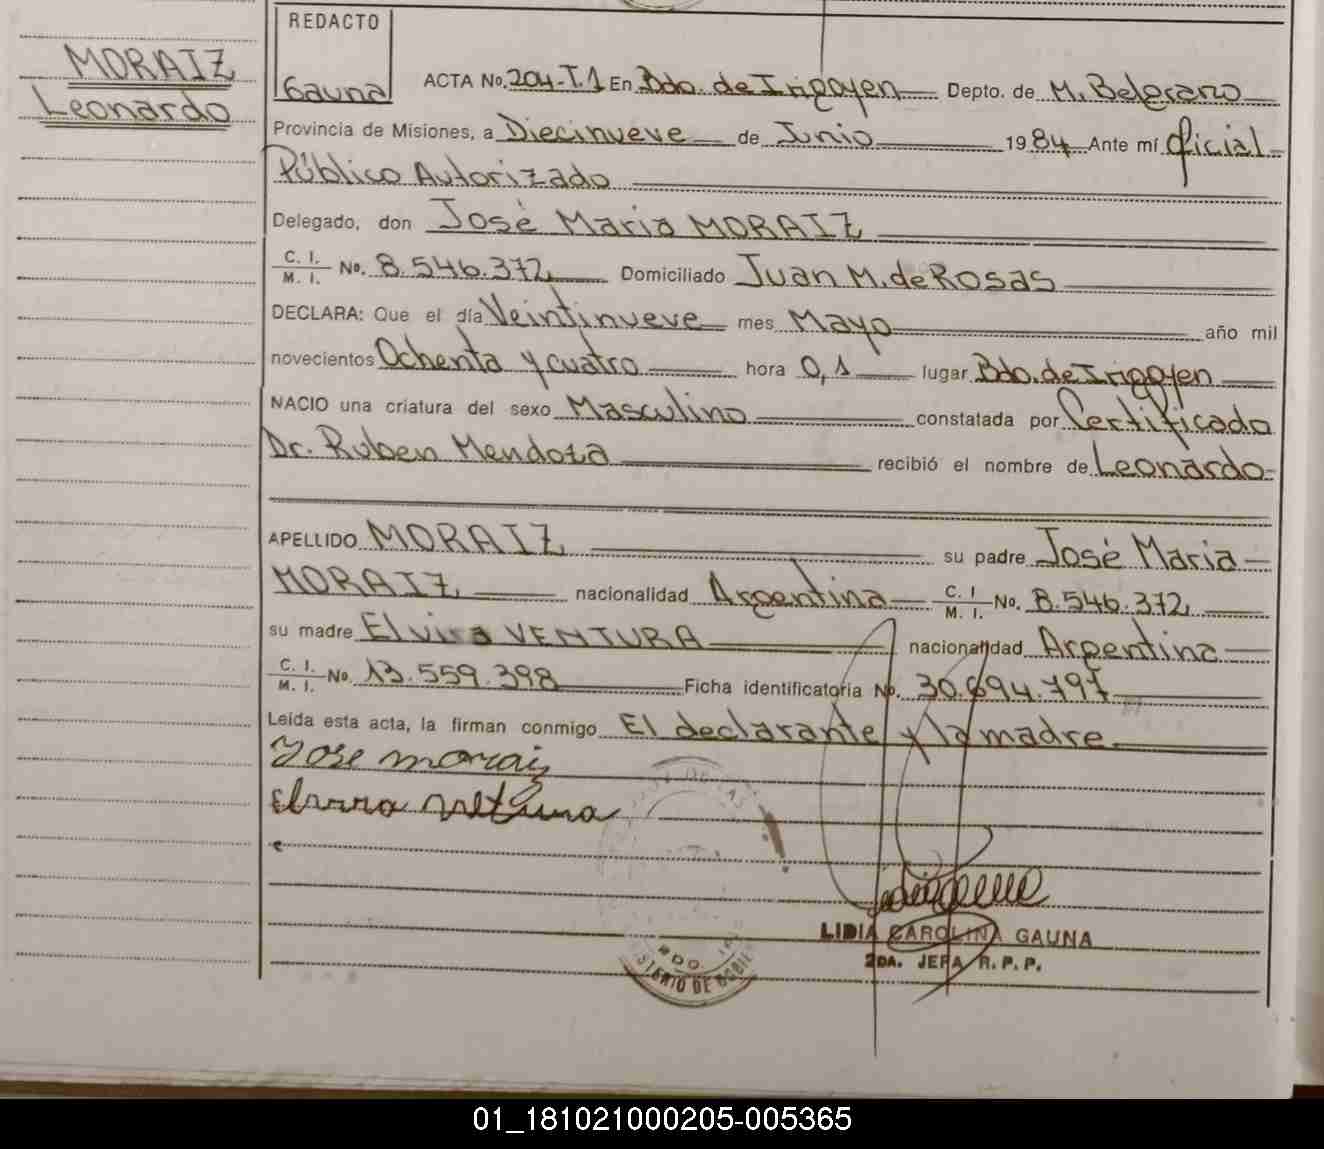 REDACTO
MORAIZ
Leonardo
Gauna
ACTA No. 204-T.1 En Bdo. de Irigoyen Depto. de M. Belgrano
Provincia de Misiones, a Diecinueve de Junio 1984 Ante mí Oficial
Público Autorizado
Delegado, don José Maria MORAIZ
C. I.
M. I. No. 8.546.372 Domiciliado Juan M. de Rosas
DECLARA: Que el día Veintinueve mes Mayo año mil
novecientos Ochenta y cuatro hora 0,1 lugar Bdo. de Irigoyen
NACIO una criatura del sexo Masculino constatada por Certificado
Dr. Ruben Mendoza recibió el nombre de Leonardo
APELLIDO MORAIZ su padre José Maria
MORAIZ nacionalidad Argentina C. I. M. I. No. 8.546.372
su madre Elvira VENTURA nacionalidad Argentina
C. I.
M. I. No. 13.559.398 Ficha identificatoria No. 30.694.797
Leída esta acta, la firman conmigo El declarante y la madre
Jose morais
LIDIA CAROLINA GAUNA
2DA. JEFA R. P. P.
01_181021000205-005365